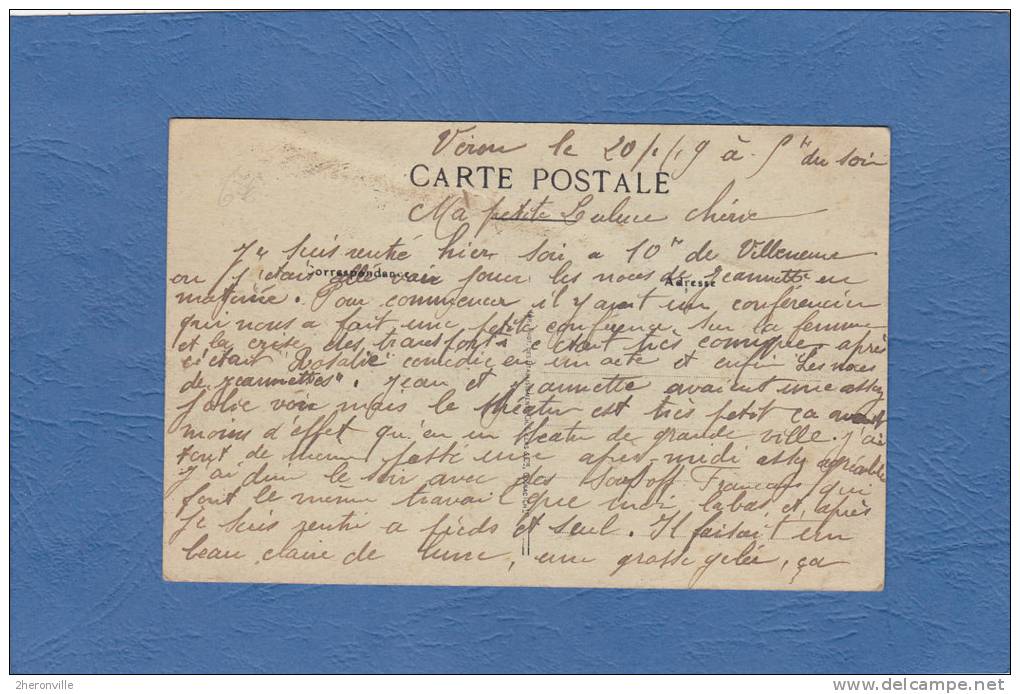 Véron le 20/1/19 à 5h du soir
CARTE POSTALE
Ma petite Lulue chérie
Je suis rentré hier soir a 10h de Villeneuve
Correspondance
Adresse
ou j'etais allé voir jouer les noces de Jeannette en
matinée. Pour commencer il y avait un conférencier
qui nous a fait une petite conference sur la femme
et la crise des transports c'etait tres comique, après
c'était "Rosalie" comedie en un acte et enfin "Les noces
de Jeannettes". Jean et Jeannette avaient une assez
jolie voix mais le théatre est tres petit ça avait
moins d'effet qu'en un theatre de grande ville. J'ai
tout de meme passé une apres-midi assez agréable
J'ai diné le soir avec des Sous off Français qui
font le meme travail que moi labas, et après
je suis rentré a pieds et seul. Il faisait un
beau claire de lune, une grosse gelée, ça
2heronville
Delcampe.net